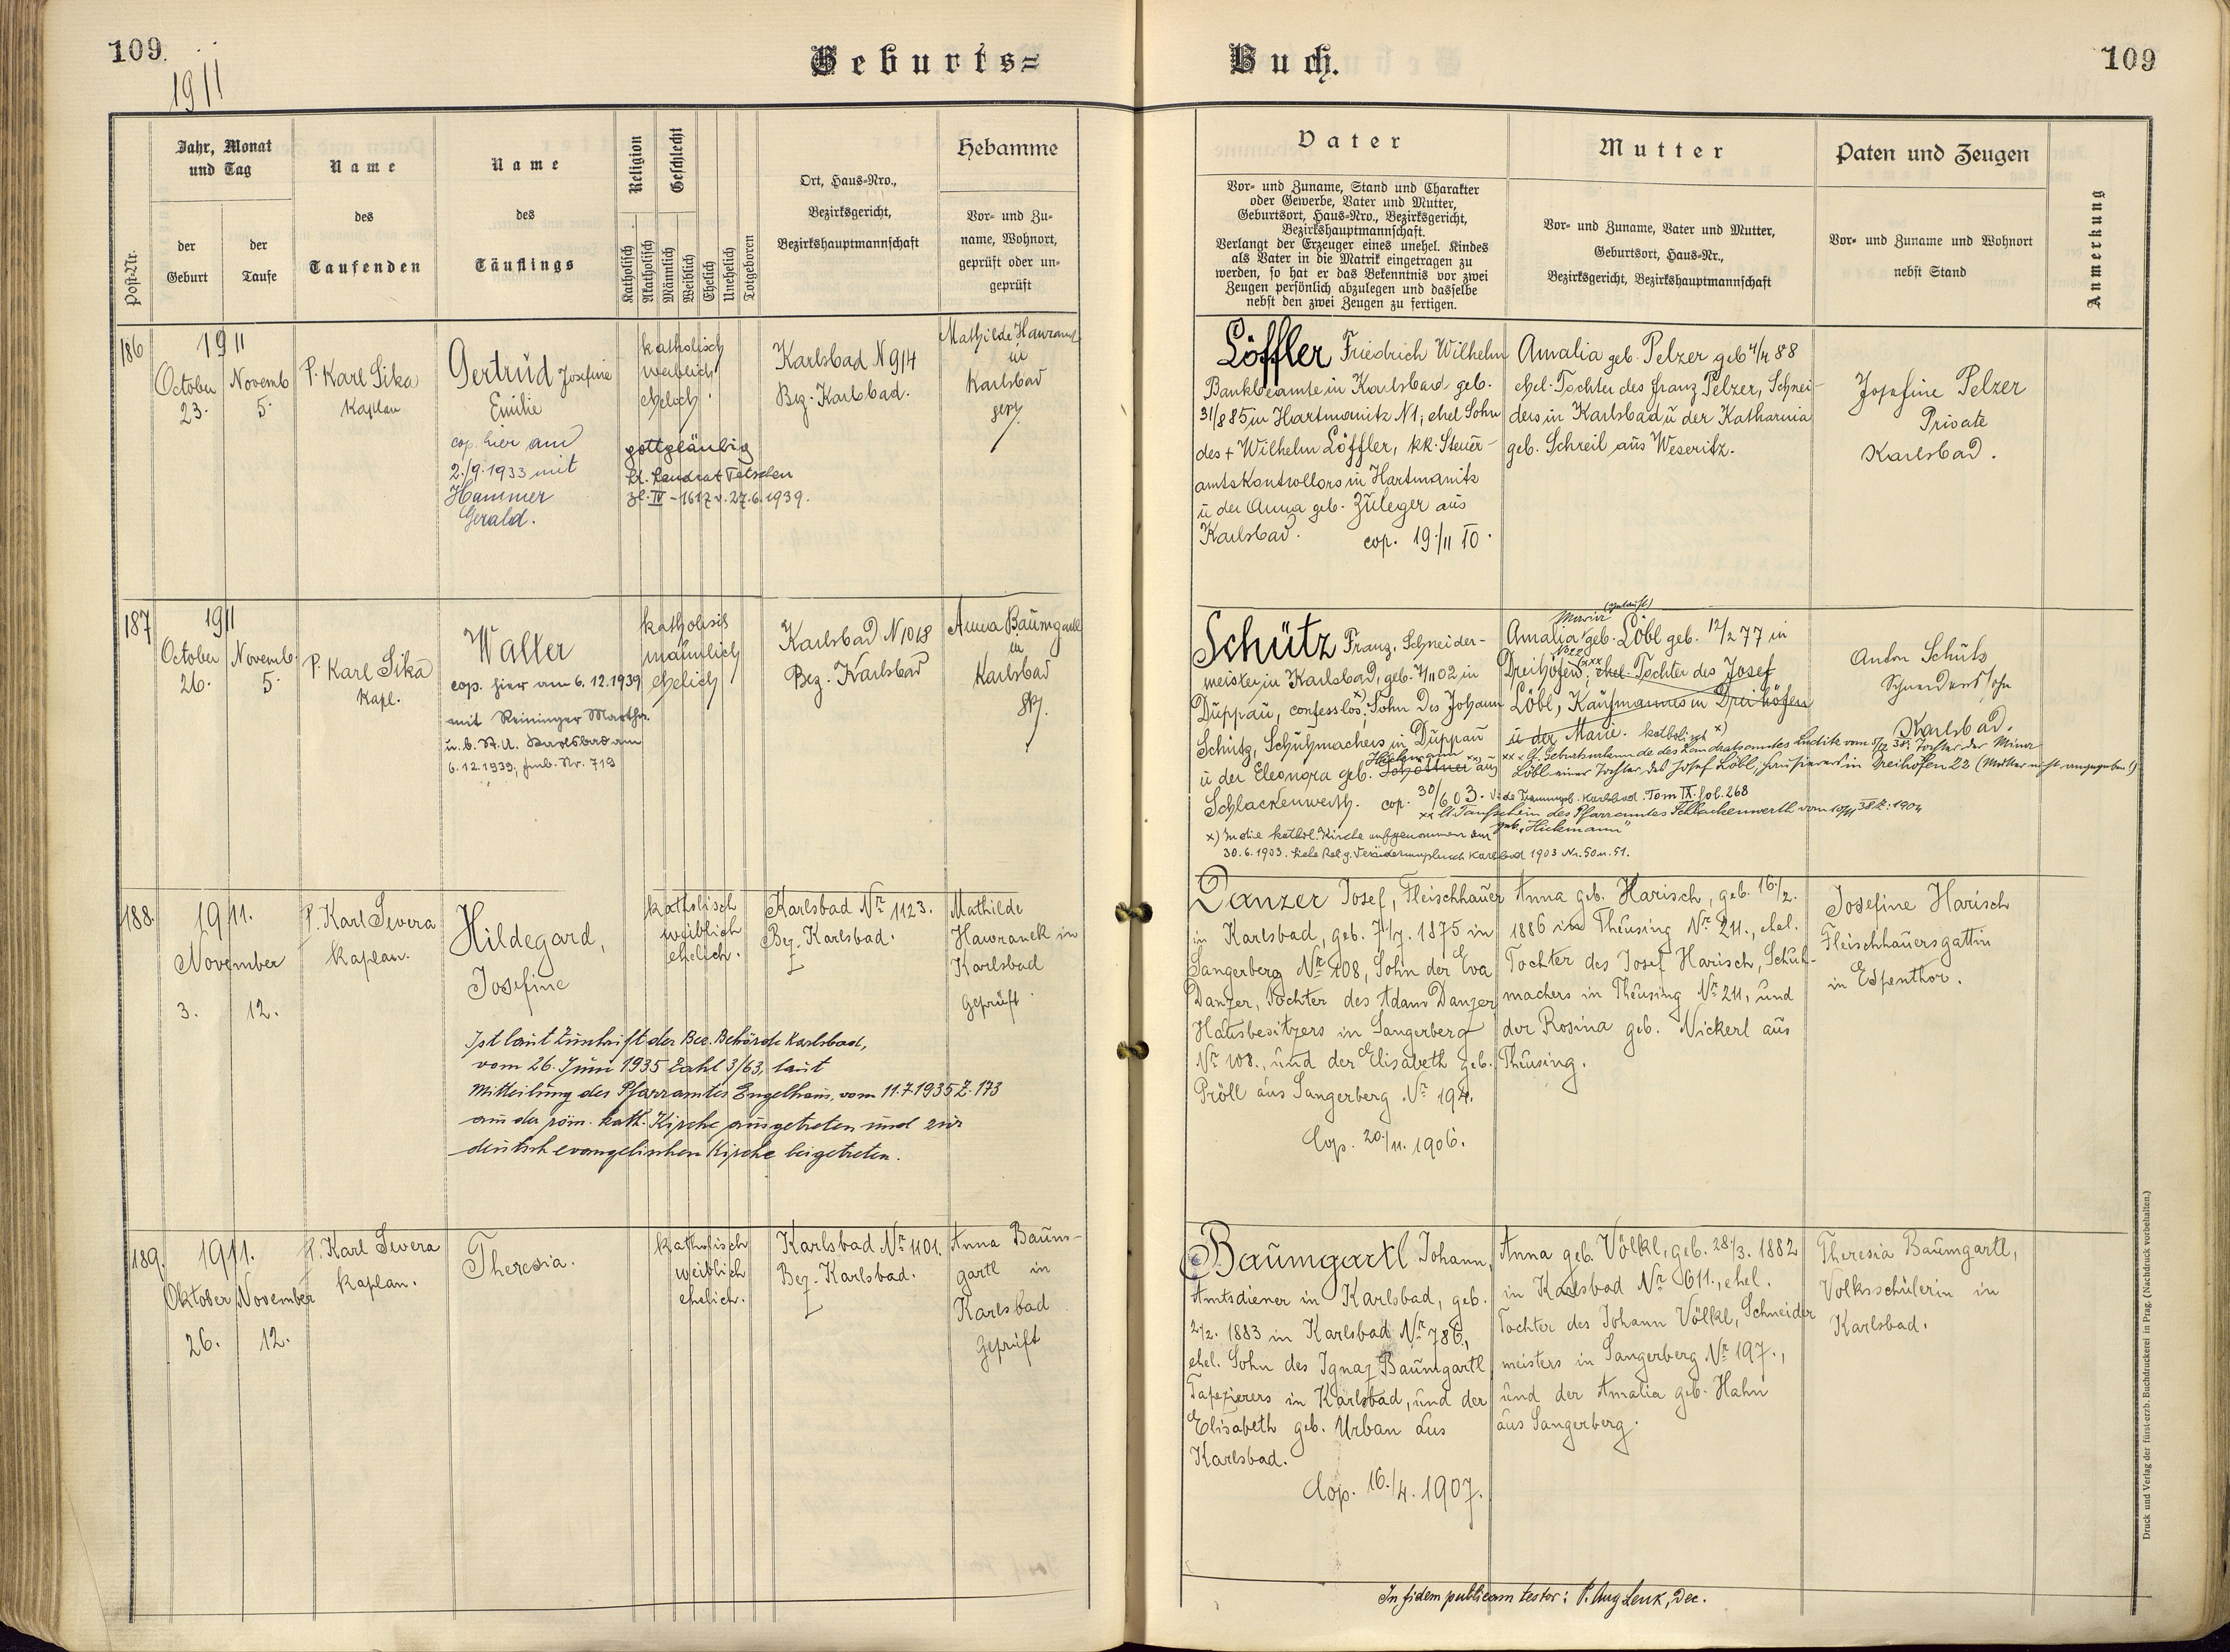 109.
1911
Geburts=
Buch.
109
Post-Nr.
Jahr, Monat
und Tag
der
Geburt
der
Taufe
Name
des
Taufenden
Name
des
Täuflings
Religion
Geschlecht
Katholisch
Akatholisch
Männlich
Weiblich
Ehelich
Unehelich
Totgeboren
Ort, Haus=Nro.,
Bezirksgericht,
Bezirkshauptmannschaft
Hebamme
Vor= und Zu=
name, Wohnort,
geprüft oder un=
geprüft
Vater
Vor= und Zuname, Stand und Charakter
oder Gewerbe, Vater und Mutter,
Geburtsort, Haus=Nro., Bezirksgericht,
Bezirkshauptmannschaft.
Verlangt der Erzeuger eines unehel. Kindes
als Vater in die Matrik eingetragen zu
werden, so hat er das Bekenntnis vor zwei
Zeugen persönlich abzulegen und dasselbe
nebst den zwei Zeugen zu fertigen.
Mutter
Vor= und Zuname, Vater und Mutter,
Geburtsort, Haus=Nr.,
Bezirksgericht, Bezirkshauptmannschaft
Paten und Zeugen
Vor= und Zuname und Wohnort
nebst Stand
Anmerkung
186
1911
October
23.
Novemb
5.
P. Karl Sika
Kaplan
Gertrud Josefine
Emilie
cop. hier am
2./9.1933 mit
Hammer
Gerald.
katholisch
weiblich
ehelich.
gottgläubig
lt. Landrat Tetschen
Zl. IV - 1617 v. 27.6.1939.
Karlsbad N 914
Bez. Karlsbad.
Mathilde Hawranek
in
Karlsbad
gepr.
Löffler Friedrich Wilhelm
Bankbeamte in Karlsbad geb.
31/8 85 in Hartmanitz N1, ehel Sohn
des + Wilhelm Löffler, kk. Steuer-
amtskontrollors in Hartmanitz
u der Anna geb. Züleger aus
Karlsbad.
cop. 19./11 10.
Amalia geb. Pelzer geb 4/4 88
ehel. Tochter des Franz Pelzer, Schnei-
ders in Karlsbad u der Katharina
geb. Schreil aus Weseritz.
Josefine Pelzer
Private
Karlsbad.
187
1911
October
26.
Novemb.
5.
P. Karl Sika
Kapl.
Walter
cop. hier am 6.12.1939
mit Reininger Martha
u. b. St. A. Karlsbad am
6.12.1939, Fmb. Nr. 719
katholisch
männlich
ehelich
Karlsbad N 1018
Bez. Karlsbad
Anna Baumgartl
in
Karlsbad
gepr.
Schütz Franz, Schneider-
meister in Karlsbad, geb. in
Duppau, confesslos, x) Sohn des Johann
Schütz, Schuhmachers in Duppau
Hickmann xx)
u der Eleonora geb. aus
Schlackenwerth. cop. 30/6 03. Vide Trauungsb. Karlsbad. Tom IX. fol. 268
xx lt Taufschein des Pfarramtes Schlackenwerth vom
geb. "Hickmann"
x) In die kathol. Kirche aufgenommen am
30.6.1903. Siehe Relig. Veränderungsbuch Karlsbad 1903 Nr. 50 u. 51.
Maria (getauft)
Amalia geb. Löbl geb. 12/2 77 in
N 22
Dreihöfen; xxx ehel. Tochter des Josef
Löbl, Kaufmannes in Dreihöfen
u der Marie. katholisch x)
xxx lt. Geburtsurkunde des Landratsamtes Luditz vom Tochter der Minna
Löbl einer Tochter des Josef Löbl, Hausierers in Dreihöfen 22 (Mutter nicht angegeben!)
Anton Schütz
Schneiderssohn
Karlsbad.
188.
1911.
November
3.
12.
P. Karl Severa
Kaplan.
Hildegard,
Josefine
katholisch
weiblich
ehelich.
Karlsbad Nr 1123.
Bez. Karlsbad.
Mathilde
Hawranek in
Karlsbad
Geprüft.
Ist laut Zuschrift der Bez. Behörde Karlsbad,
vom 26. Juni 1935 Zahl 3/63, laut
Mitteilung des Pfarramtes Engelhaus, vom 11.7.1935 Z. 173
aus der röm. kath. Kirche ausgetreten und zur
deutsch evangelischen Kirche beigetreten.
Danzer Josef, Fleischhauer
in Karlsbad, geb. 7./7. 1875 in
Sangerberg Nr 108, Sohn der Eva
Danzer, Tochter des Adam Danzer
Hausbesitzers in Sangerberg
Nr 108., und der Elisabeth geb.
Pröll aus Sangerberg Nr 194.
Cop. 20./11. 1906.
Anna geb. Harisch, geb. 16./2.
1886 in Theusing Nr 211., ehel.
Tochter des Josef Harisch, Schuh-
machers in Theusing Nr 211, und
der Rosina geb. Nickerl aus
Theusing.
Josefine Harisch
Fleischhauersgattin
in Espenthor.
189.
1911.
Oktober
26.
November
12.
P. Karl Severa
Kaplan.
Theresia.
katholisch
weiblich
ehelich.
Karlsbad Nr 1101.
Bez. Karlsbad.
Anna Baum-
gartl in
Karlsbad
Geprüft
Baumgartl Johann,
Amtsdiener in Karlsbad, geb.
2./2. 1883 in Karlsbad Nr 786,
ehel. Sohn des Ignaz Baumgartl
Tapezierers in Karlsbad, und der
Elisabeth geb. Urban aus
Karlsbad.
Cop. 16./4. 1907.
Anna geb. Völkl, geb. 28./3. 1882
in Karlsbad Nr 611., ehel.
Tochter des Johann Völkl, Schneider
meisters in Sangerberg Nr 197.,
und der Amalia geb. Hahn
aus Sangerberg.
Theresia Baumgartl,
Volksschülerin in
Karlsbad.
In fidem publicam testor: P. Aug Lenk, Dec.
Druck und Verlag der fürst-erzb. Buchdruckerei in Prag. (Nachdruck vorbehalten.)